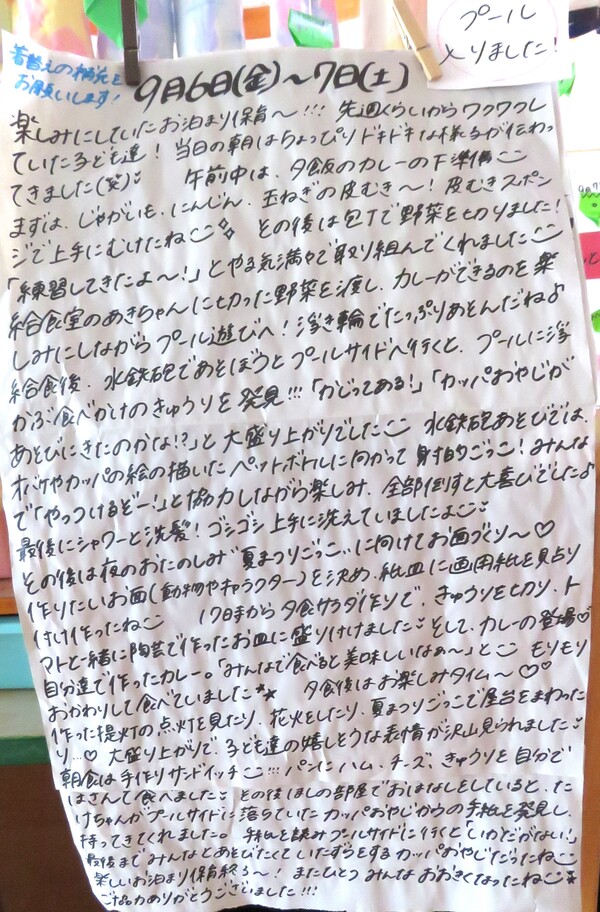 プール
入りました!
着替えの補充を
お願いします!
9月6日(金)~7日(土)
楽しみにしていたお泊まり保育~!!! 先週くらいからワクワクし
ていた子ども達! 当日の朝はちょっぴりドキドキな様子が伝わっ
てきました 午前中は、夕飯のカレーの下準備
まずは、じゃがいも、にんじん、玉ねぎの皮むき~! 皮むきスポン
ジで上手にむけたね その後は包丁で野菜を切りました!
「練習してきたよ~!」とやる気満々で取り組んでくれました
給食室のあきちゃんに切った野菜を渡し、カレーができるのを楽
しみにしながらプール遊びへ! 浮き輪でたっぷりあそんだね♪
給食後、水鉄砲であそぼうとプールサイドへ行くと、プールに浮
かぶ食べかけのきゅうりを発見!!!「かじってある!」「カッパおやじが
あそびにきたのかな!?」と大盛り上がりでした 水鉄砲あそびでは、
オバケやカッパの絵の描いたペットボトルに向かって射的ごっこ! みんな
で「やっつけるぞー!」と協力しながら楽しみ、全部倒すと大喜びでした♪
最後にシャワーと洗髪! ゴシゴシ上手に洗えていましたよ
その後は夜のおたのしみ“夏まつりごっこ”に向けてお面づくり~♡
作りたいお面(動物やキャラクター)を決め、紙皿に画用紙を貼り
付け作ったね 17時から夕食サラダ作りで、きゅうりを切り、ト
マトと一緒に陶芸で作ったお皿に盛り付けました そして、カレーの登場♡
自分達で作ったカレー。「みんなで食べると美味しいなぁ~」と モリモリ
おかわりして食べていました★★ 夕食後はお楽しみタイム~♡
作った提灯の点灯を見たり、花火をしたり、夏まつりごっこで屋台をまわった
り…♡ 大盛り上がりで、子ども達の嬉しそうな表情が沢山見られました
朝食は手作りサンドイッチ!!! パンにハム、チーズ、きゅうりを自分で
はさんで食べました その後ほしの部屋でおはなしをしていると、た
けちゃんがプールサイドに落ちていたカッパおやじからの手紙を発見し、
持ってきてくれました。 手紙を読みプールサイドに行くと「いかだがない!」
最後までみんなとあそびたくていたずらをするカッパおやじだったね
楽しいお泊まり保育終る~! またひとつみんなおおきくなったね★
ご協力ありがとうございました!!!